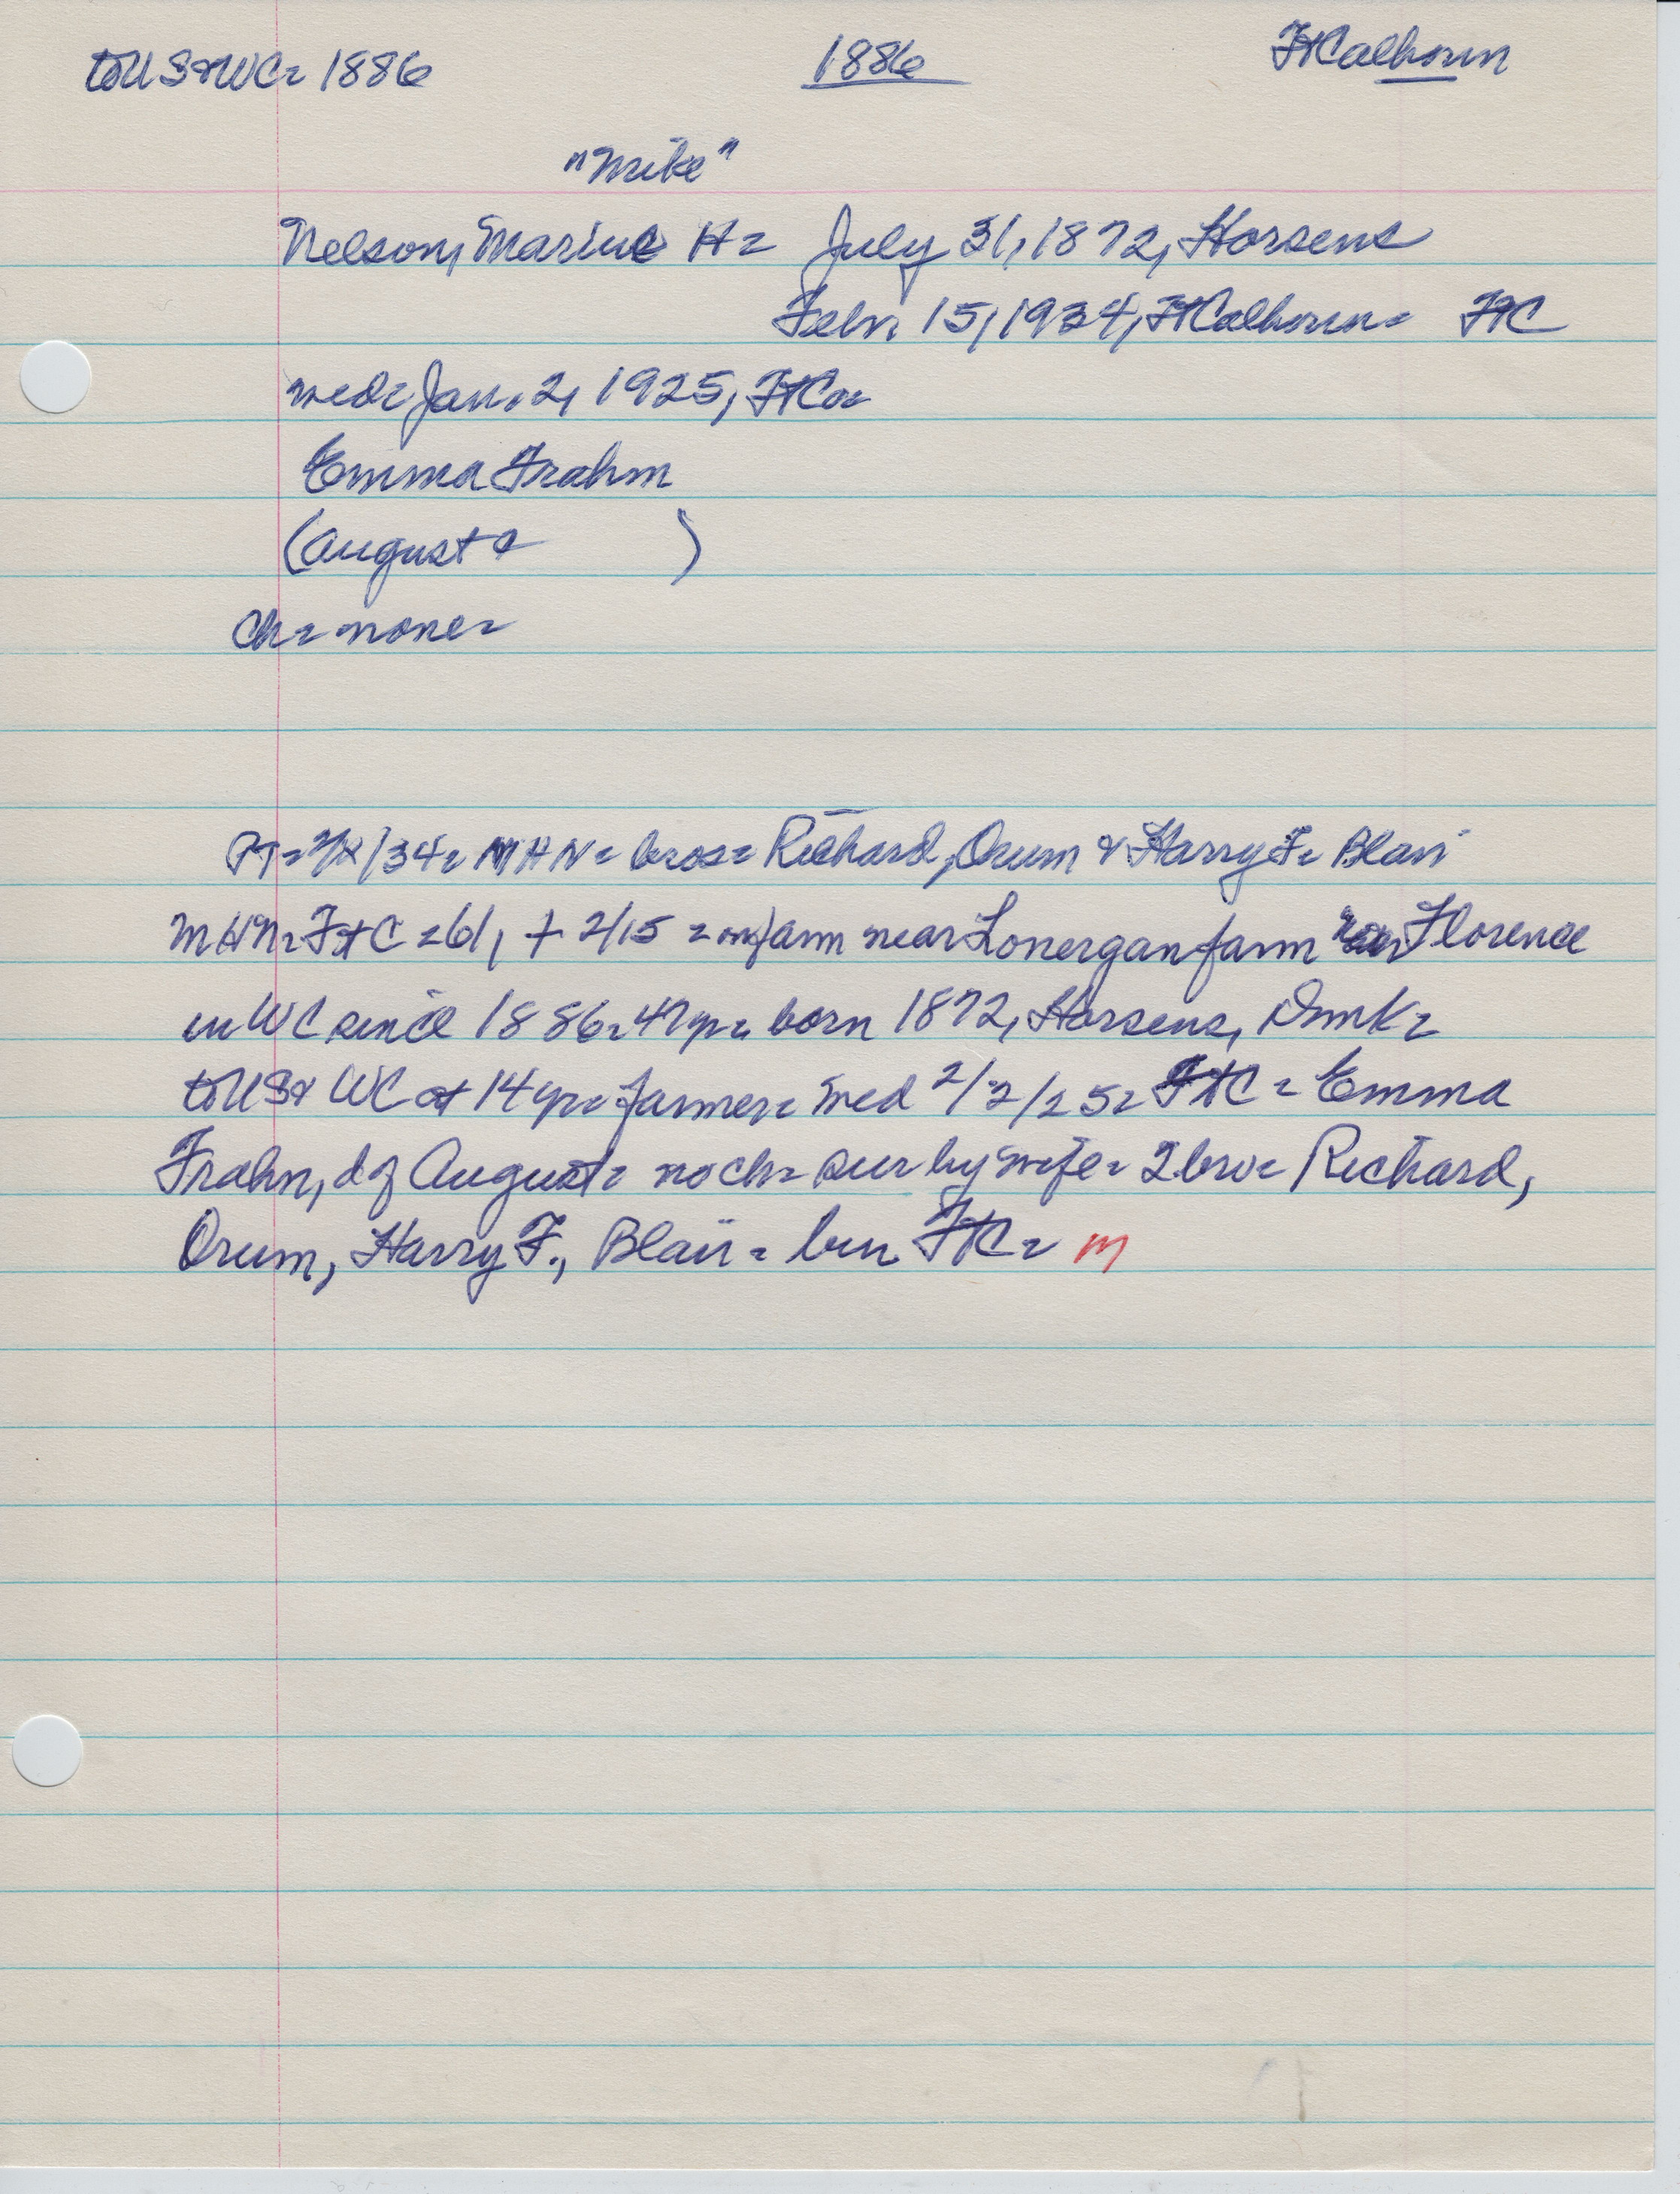 to US & WC = 1886 1886 Ft Calhoun
"Mike"
Nelson, Marius H = July 31, 1872, Horsens
Febr. 15, 1934, Ft Calhoun = FtC
wed = Jan. 2, 1925, FtC =
Emma Frahm
(August & )
Ch = none =
PT = /34 = MHN = bros = Richard, Orum & Harry F = Blair
MHN = FtC = 61, + 2/15 = on farm near Lonergan farm near Florence
in WC since 1886 = 47 yr = born 1872, Horsens, Dmk =
to US & WC at 14 yr = farmer = wed 2/2/25 = FtC = Emma
Frahm, d of August = no ch = sur by wife = 2 bro = Richard,
Orum, Harry F., Blair = bur FtC = M